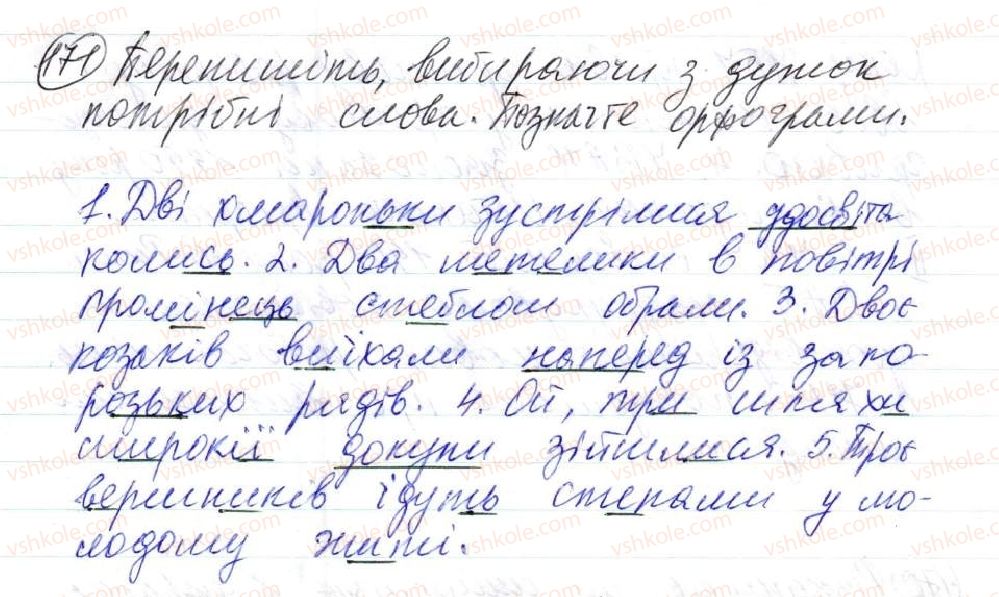 171 Перепишіть, вибираючи з дужок
потрібні слова. Позначте орфограми.
1. Дві хмароньки зустрілися удосвіта
колись. 2. Два метелики в повітрі
промінець стеблом обрали. 3. Двоє
козаків виїхали наперед із запо-
розьких рядів. 4. Ой, три шляхи
широкії докупи зійшлися. 5. Троє
вершників ідуть степами у мо-
лодому житі.